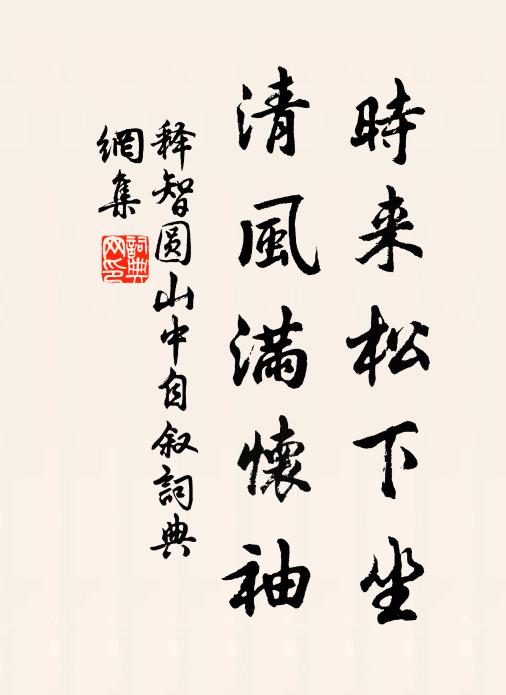 時来松下坐
清風满懷袖
释智圆山中自叙詞典
網集
詞典
网印